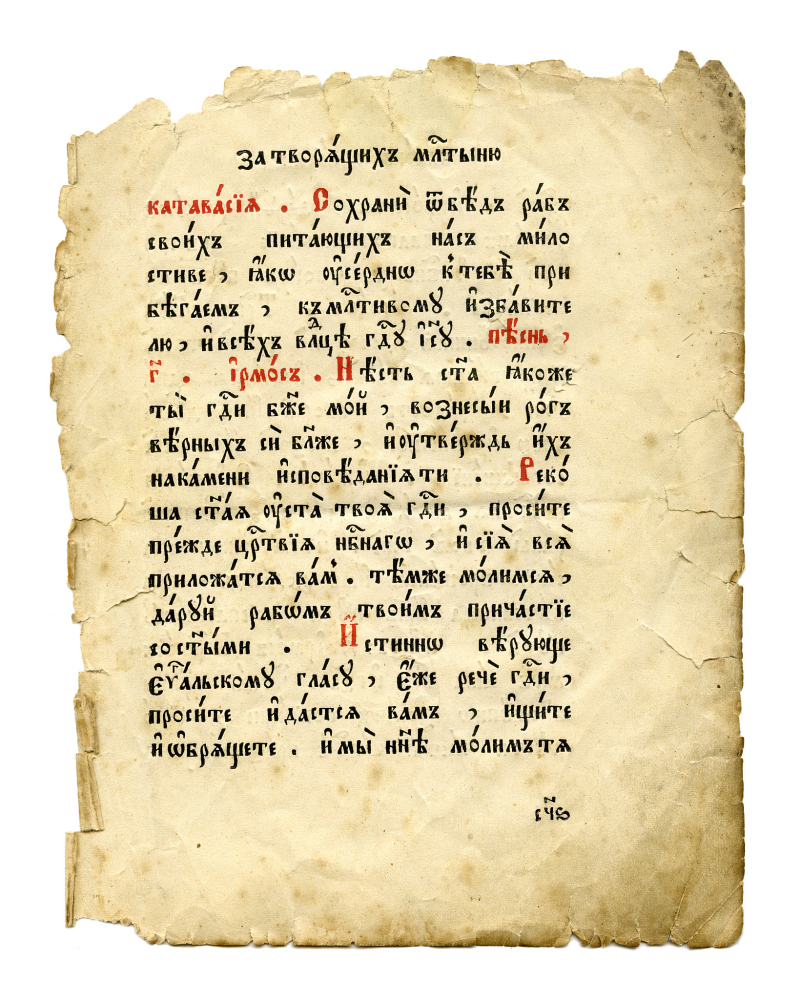 За творѧ́щихъ мл҃тыню
катава́сїѧ . Сохранѝ ѿбѣ́дъ ра́бъ
свои́хъ пита́ющихъ на́съ ми́ло
стиве , ꙗ҆́кѡ ᲂу҆се́рднѡ к̾тебѣ̀ при
бѣга́емъ , къмл҃тивомꙋ и҆зба́вите
лю , и҆всѣ́хъ влⷣцѣ гдⷭ҇ꙋ і҆сꙋ҃ . пѣ́снь ,
г҃ . і҆рмо́съ . Нѣ́сть ст҃а ꙗ҆́коже
ты̀ гдⷭ҇и бж҃е мо́й , вознесы́и ро́гъ
вѣ́рныхъ сѝ бл҃же , и҆ᲂу҆тве́рждь и҆́хъ
нака́мени и҆сповѣ́данїѧти . Реко́
ша ст҃а́ѧ ᲂу҆ста̀ твоѧ̀ гдⷭ҇и , проси́те
пре́жде црⷭ҇твїѧ нбⷭ҇нагѡ , и҆ сїѧ̀ всѧ̀
прилѡжа́тсѧ ва́м̾ . тѣ́мже мо́лимсѧ ,
да́рꙋй рабѡ́мъ твои́мъ прича́стїе
со ст҃ы́ми . И҆́стиннѡ вѣ́рꙋюще
є҆ѵⷢ҇а́льскомꙋ гла́сꙋ , є҆́же речѐ гдⷭ҇и ,
проси́те и҆да́стсѧ ва́мъ , и҆щи́те
и҆ѡ҆брѧ́щете . и҆мы̀ нн҃ѣ мо́лимътѧ
сч҃ѕ